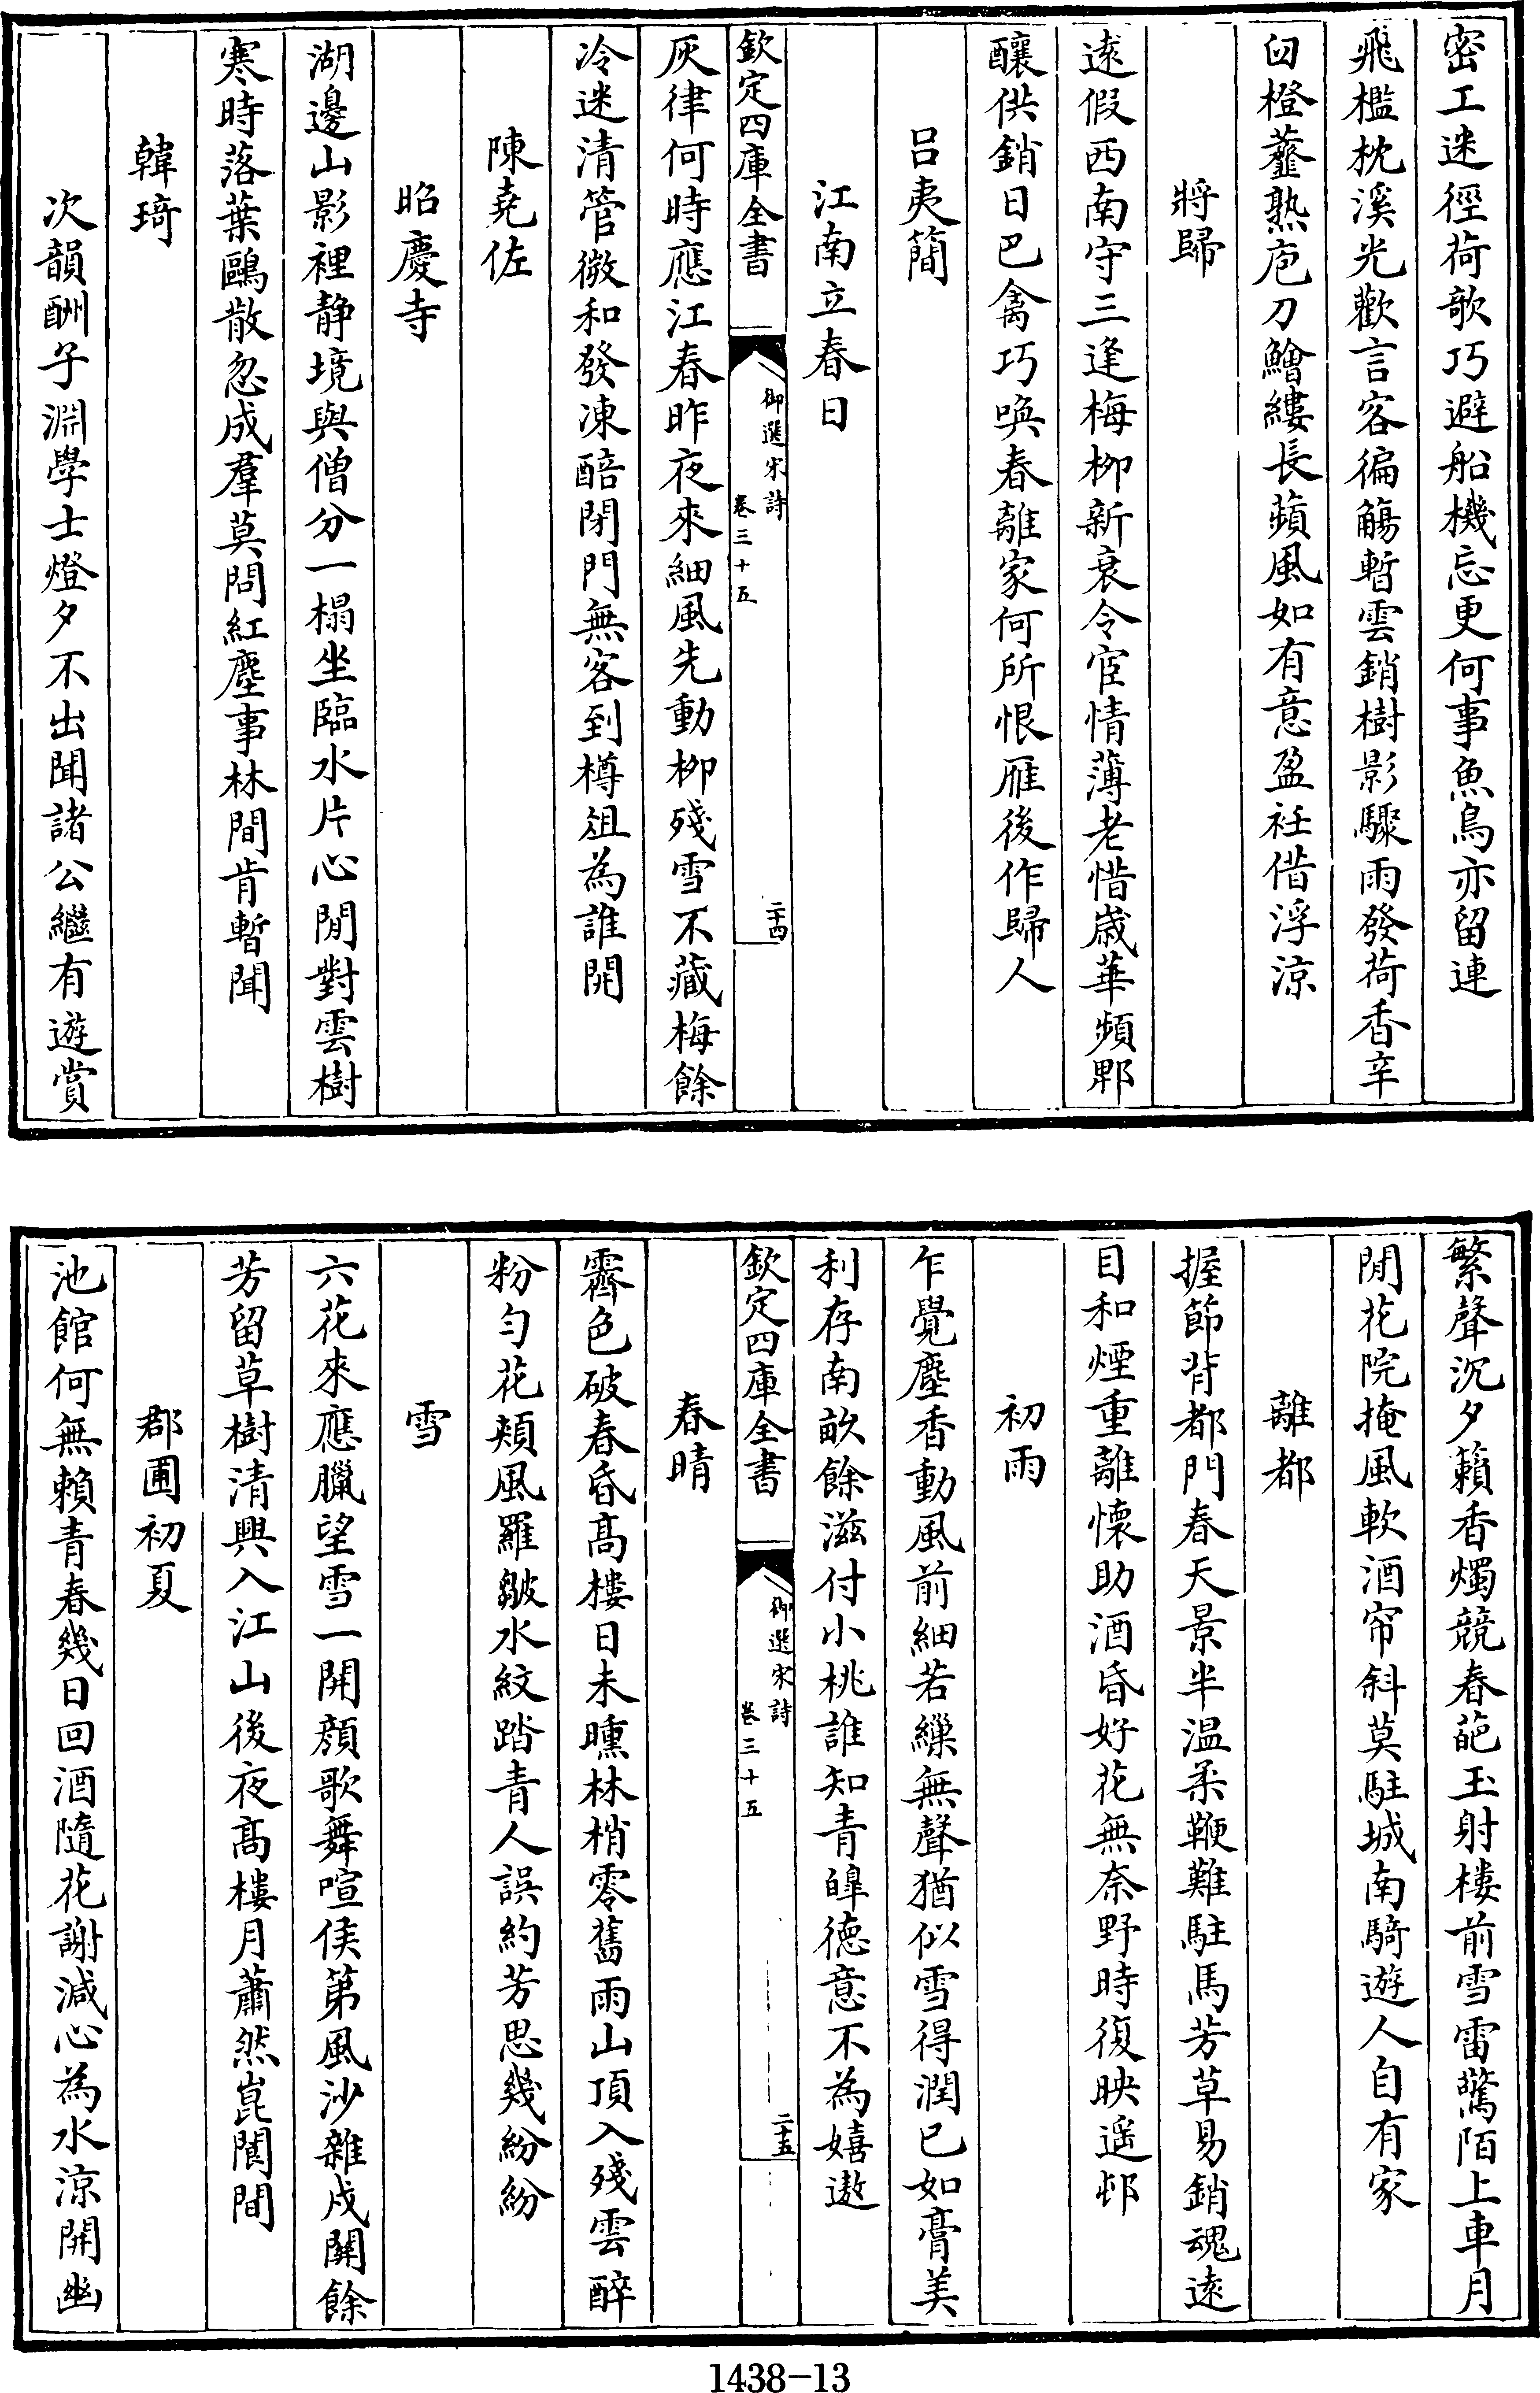 密工迷徑荷歌巧避船機忘更何事魚鳥亦留連
飛檻枕溪光歡言客徧觴暫雲銷樹影驟雨發荷香辛
臼橙虀熟庖刀鱠縷長蘋風如有意盈衽借浮涼
將歸
逺假西南守三逢梅柳新衰令宦情薄老惜歳華頻郫
釀供銷日巴禽巧喚春離家何所恨雁後作歸人
呂夷簡
江南立春日
欽定四庫全書
御選宋詩
卷三十五
二十四
灰律何時應江春昨夜來細風先動柳殘雪不藏梅餘
冷迷清管微和發凍醅閉門無客到樽俎為誰開
陳堯佐
昭慶寺
湖邊山影裡静境與僧分一榻坐臨水片心閒對雲樹
寒時落葉鷗散忽成羣莫問紅塵事林間肯暫聞
韓琦
次韻酬子淵學士燈夕不出聞諸公繼有遊賞
繁聲沉夕籟香燭競春葩玉射樓前雪雷驚陌上車月
閒花院掩風軟酒帘斜莫駐城南騎遊人自有家
離都
握節背都門春天景半温柔鞭難駐馬芳草易銷魂逺
目和煙重離懷助酒昏好花無奈野時復映遥邨
初雨
乍覺塵香動風前細若繅無聲猶似雪得潤已如膏美
利存南畝餘滋付小桃誰知青皥徳意不為嬉遨
欽定四庫全書
御選宋詩
卷三十五
二十五
春晴
霽色破春昏髙樓日未曛林梢零舊雨山頂入殘雲醉
粉勻花頰風羅皺水紋踏青人誤約芳思幾紛紛
雪
六花來應臘望雪一開顔歌舞喧侯第風沙雜戍闗餘
芳留草樹清興入江山後夜髙樓月蕭然崑閬間
郡圃初夏
池館何無賴青春幾日回酒隨花謝減心為水涼開幽
1438-13